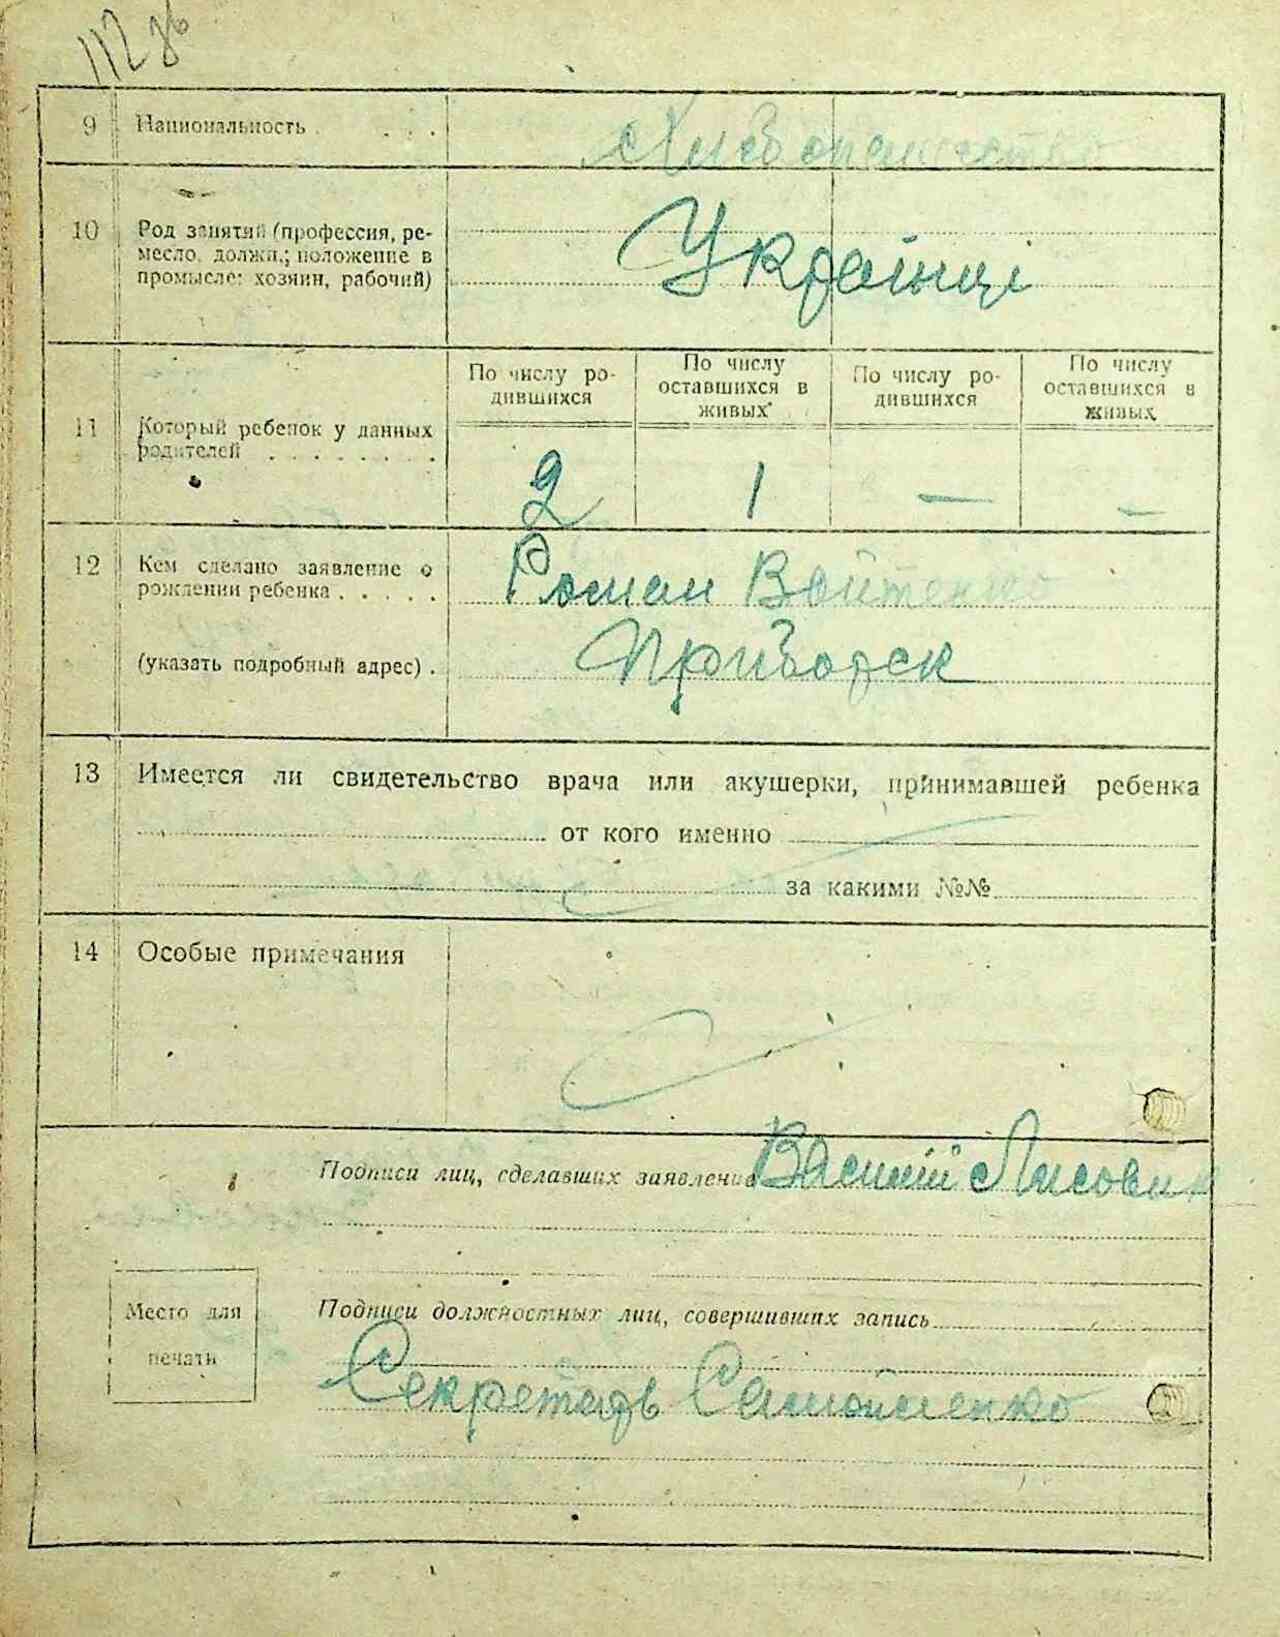 112 зв
9 Национальность . . . .
Хлебопашество
10 Род занятий (профессия, ре-
месло, должн.; положение в
промысле: хозяин, рабочий)
Українці
По числу ро-
дившихся
По числу
оставшихся в
живых
По числу ро-
дившихся
По числу
оставшихся в
живых
11 Который ребенок у данных
родителей . . . . . . . .
2 1 — —
12 Кем сделано заявление о
рождении ребенка . . . . .
Роман Войтенко
(указать подробный адрес) .
Приборск
13 Имеется ли свидетельство врача или акушерки, принимавшей ребенка
от кого именно
за какими №№
14 Особые примечания
Подписи лиц, сделавших заявление Василий Лисовик
Место для
печати
Подписи должностных лиц, совершивших запись
Секретарь Самойленко